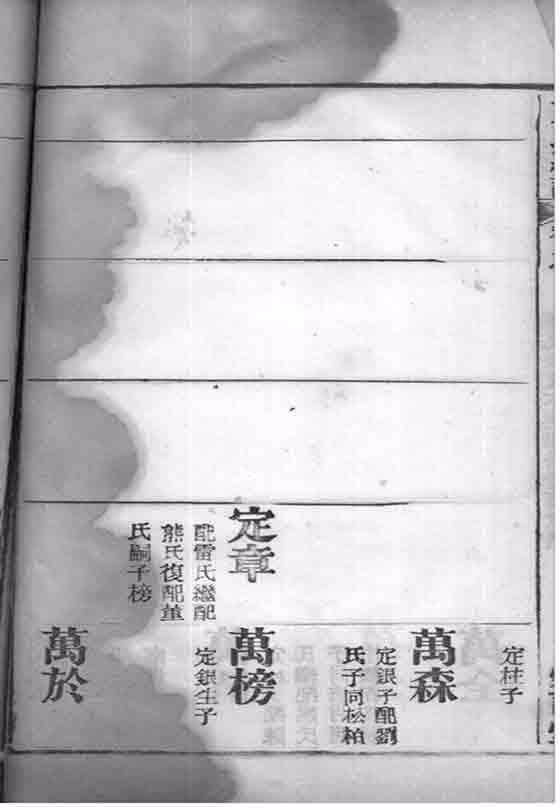 定章
配雷氏繼配
熊氏復配董
氏嗣子榜
定柱子
萬森
定銀子配劉
氏子同松柏
萬榜
定銀生子
萬於